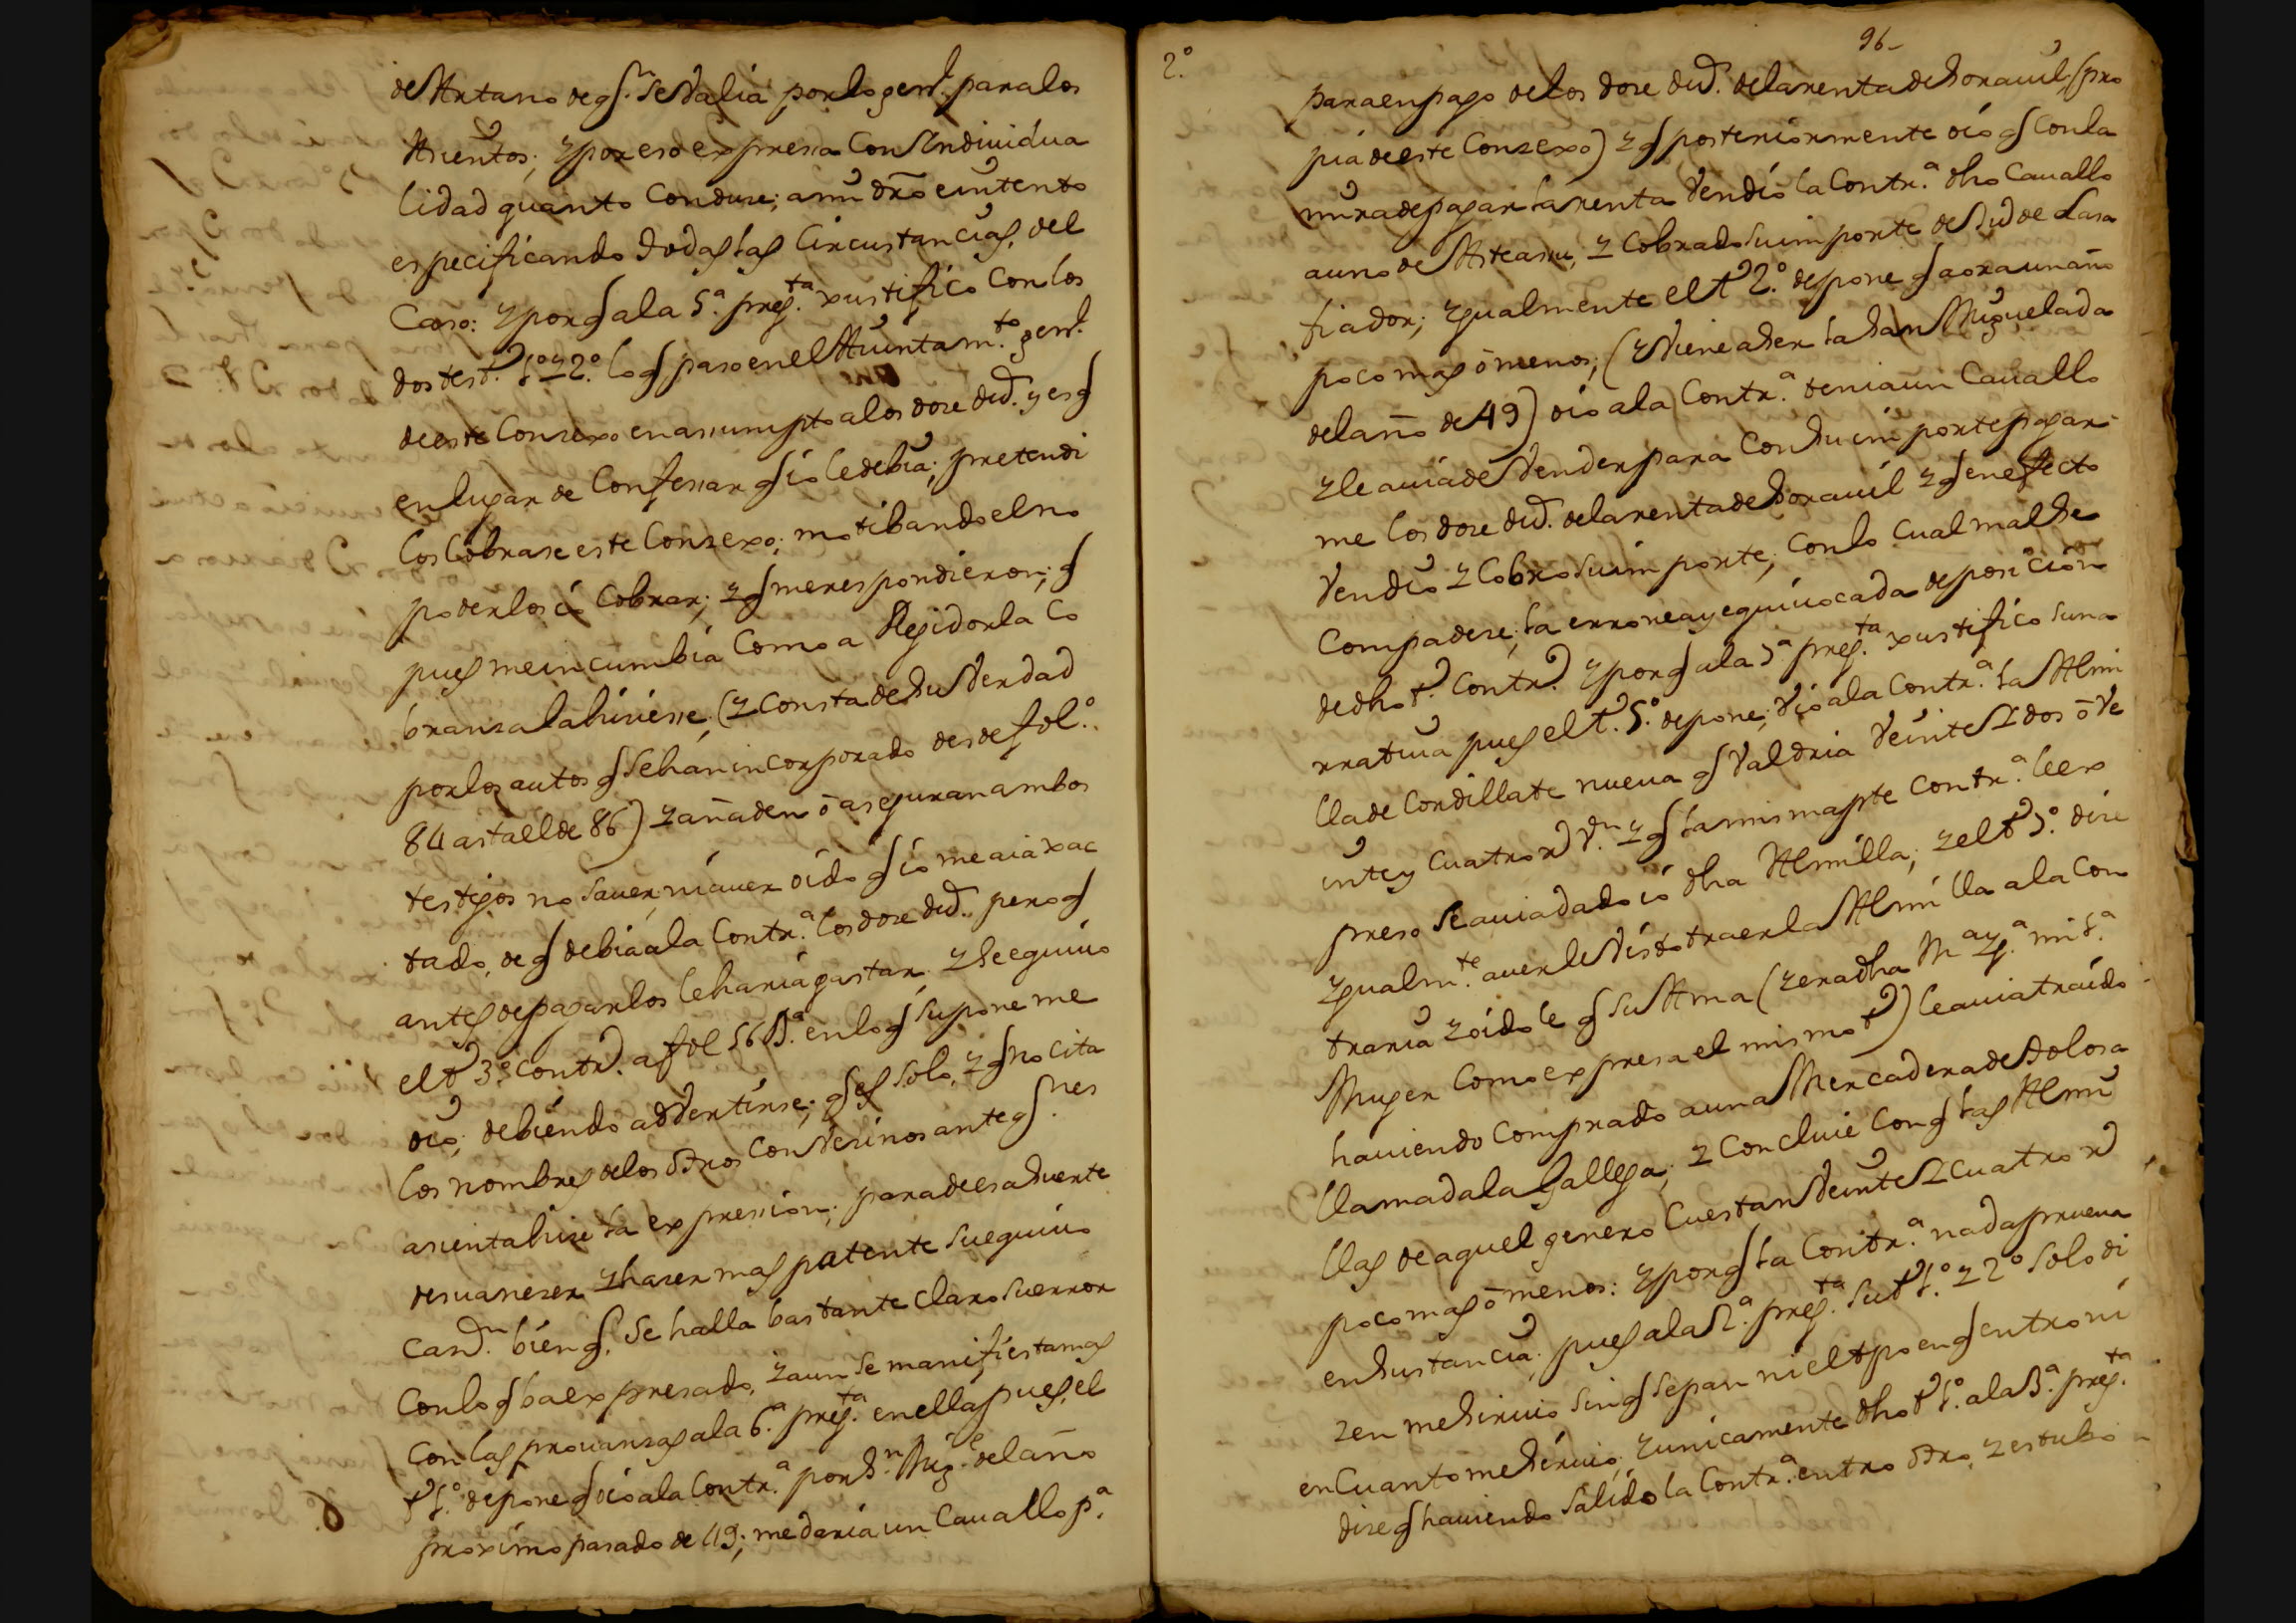 de Artano de q.e se Valia por lo gen.l para los
Asientos; y por eso expresa con Indiuidua
lidad quanto Conduze; a mi dro e intento
especificando Todas las Circustancias, del
Caso: y por q a la 5.a preg.ta xustifico con los
dos test.s 1.o y 2.o lo q paso en el Aiuntam.to gen.l
de este Conzexo en asumpto a los doze duc.s y es q
en lugar de Confesar q io le debia; pretendi
los Cobrase este Conzexo; motibando el no
poderlos io Cobrar; y q me respondieron; q
pues me incumbia Como a Regidor la Co
branza la hiziese, (y Consta de su Verdad
por los autos q se han incorporado desde fol.o
84 asta el de 86) y añaden o aseguran ambos
testigos no sauer, ni auer oido q io me aia xac
tado, de q debia a la Contr.a los doze duc.s pero q
antes de pagarlos le haria gastar, y se equiuo
el t.o 3.o Contr.o a fol 56 B.ta en lo q supone me
oio; debiendo adVertirse; q es solo, y q no cita
los nombres de los otros Convezinos ante q.nes
asienta hize la expresion; para de esa suerte
desuanezer y hazer mas patente su equiuo
can.on bien q. se halla bastante claro su error
Con lo q ba expresado, y aun se manifiesta mas
Con las prouanzas a la 6.a preg.ta en ellas pues, el
t.o 1.o depone q oio a la Contr.a por S.n Mig.l del año
proximo pasado de 49; me daria un Cauallo p.a
6
2.o
96-
para en pago de los doze duc.s de la renta de Sorauil, (pro
pia de este Conzexo) y q posteriormente oio q con la
mira de pagar la renta Vendio la Contr.a dho Cauallo
a uno de Asteasu, y Cobrado su importe de su de Lasa
fiador; ygualmente el t.o 2.o depone q aora un año
poco mas o menos; (y Viene a ser la San Miguelada
del año de 49) oio a la Contr.a tenia un Cauallo
y le auia de Vender para Con su importe pagar
me los doze duc.s de la renta de Sorauil y q en efecto
Vendio y Cobro su importe; con lo cual mal se
Compadeze, la erronea y equiuocada deposicion
de dho t.o Contr.o y por q a la 7.a preg.ta xustifico su na
rratiua pues el t.o 5.o depone; Vio a la Contr.a la Almi
lla de Cordillate nueua q Valdria Veinte y dos o Ve
inte y cuatro r.s V.n y q la misma pte Contr.a le ex
preso se auia dado io dha Almilla; y el t.o 7.o dize
ygualm.te auerle Visto traer la Almilla a la Con
traria y oidole q su Ama (y era dha M.a Ag.a mi s.a
Muger Como expresa el mismo t.o) le auia traido
hauiendo Comprado a una Mercadera de Tolosa
llamada la Gallega; y Concluie Con q las Almi
llas de aquel genero Cuestan Veinte y cuatro r.s
poco mas o menos: y por q la Contr.a nada prueua
en sustancia, pues a la 2.a preg.ta su t.o 1.o y 2.o solo di
zen me siruio sin q sepan ni el tpo en q entro ni
en Cuanto me siruio, y unicamente dho t.o 1.o a la 3.a preg.ta
dize q hauiendo Salido la Contr.a entro otro, y estubo